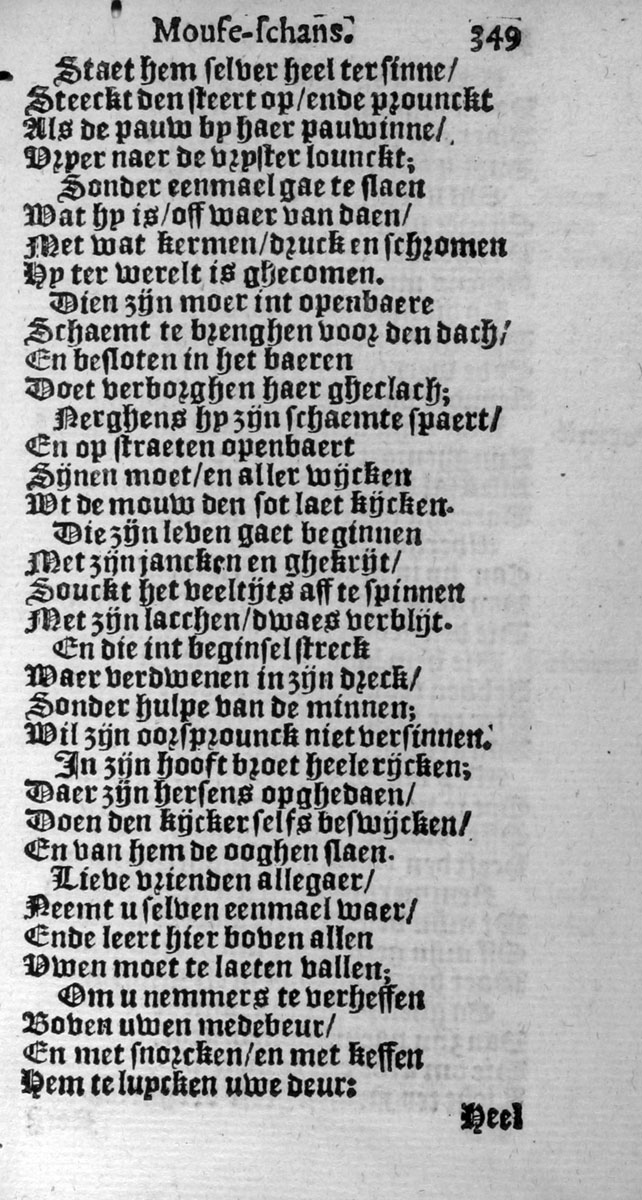 Mouse-schans. 349
Staet hem selver heel ter sinne/
Steeckt den steert op/ende prounckt
Als de pauw by haer pauwinne/
Vryer naer de vryster lounckt;
Sonder eenmael gae te slaen
Wat hy is/off waer van daen/
Met wat kermen/druck en schromen
Hy ter werelt is ghecomen.
Dien zijn moer int openbaere
Schaemt te brenghen voor den dach/
En besloten in het baeren
Doet verborghen haer gheclach;
Nerghens hy zijn schaemte spaert/
En op straeten openbaert
Sijnen moet/en aller wijcken
Wt de mouw den sot laet kijcken.
Die zijn leven gaet beginnen
Met zijn jancken en ghekrijt/
Souckt het veeltijts aff te spinnen
Met zijn lacchen/dwaes verblijt.
En die int beginsel streck
Waer verdwenen in zijn dreck/
Sonder hulpe van de minnen;
Wil zijn oorsprounck niet versinnen.
In zijn hooft broet heele rijcken;
Daer zijn hersens opghedaen/
Doen den kijcker selfs beswijcken/
En van hem de ooghen slaen.
Lieve vrienden allegaer/
Neemt u selven eenmael waer/
Ende leert hier boven allen
Vwen moet te laeten vallen;
Om u nemmers te verheffen
Boven uwen medebeur/
En met snorcken/en met keffen
Hem te luycken uwe deur:
Heel